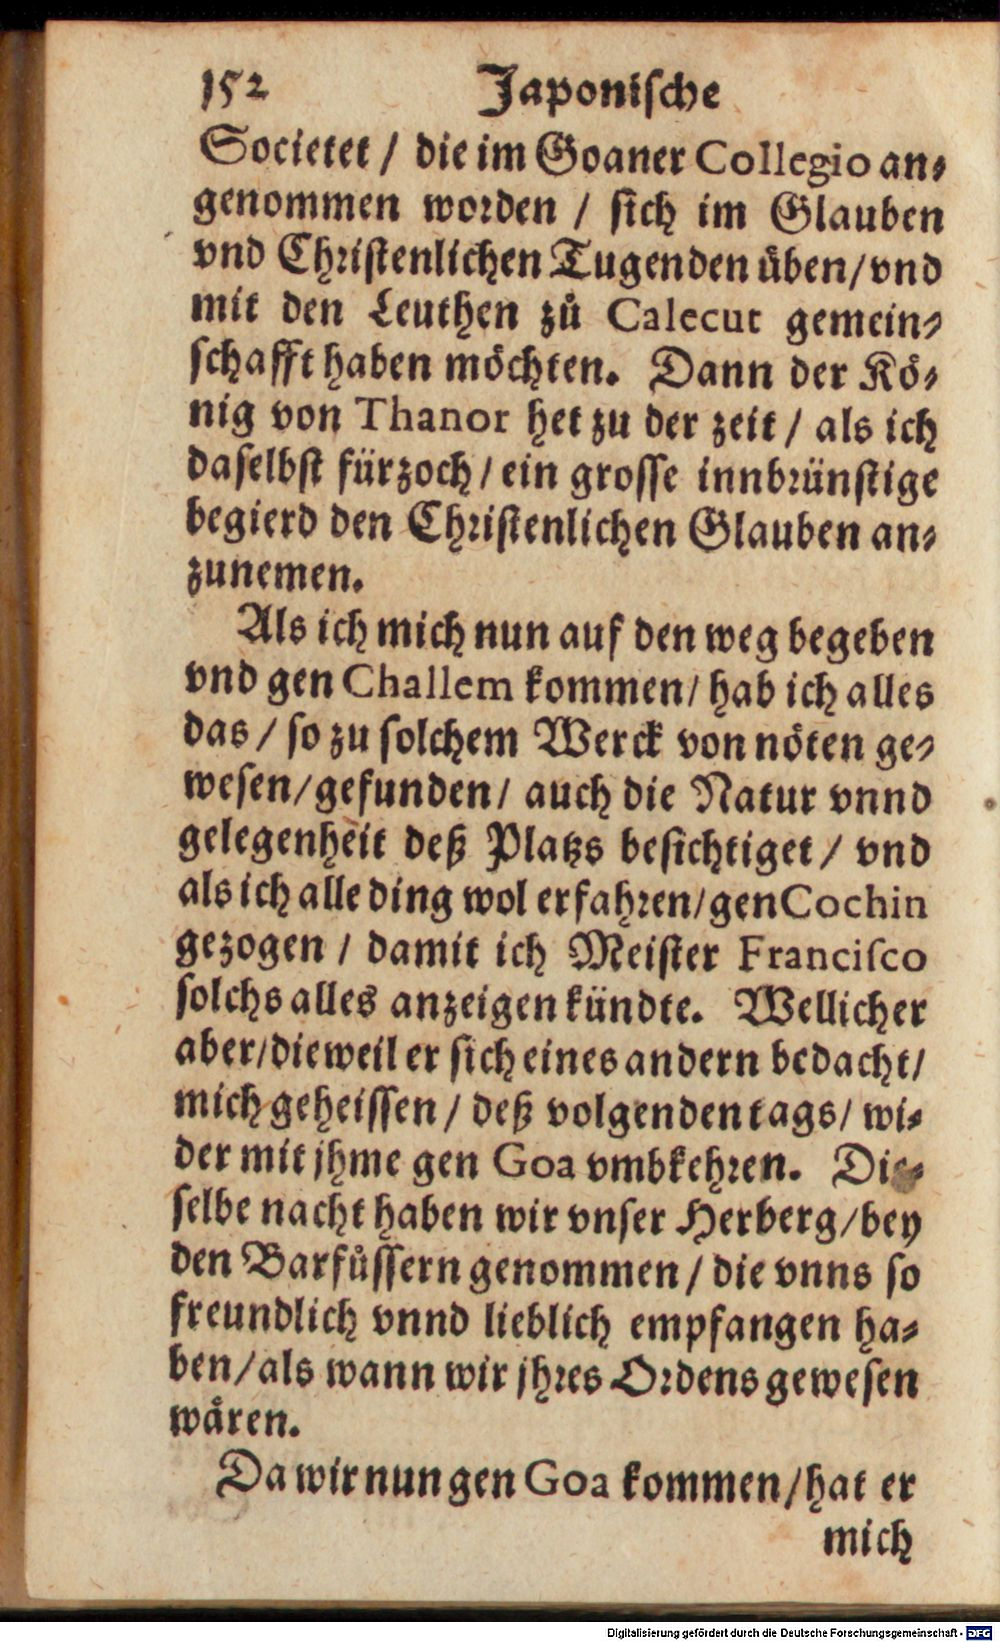 152 Japonische
Societet / die im Goaner Collegio an⸗
genommen worden / sich im Glauben
vnd Christenlichen Tugenden üben/vnd
mit den Leuthen zů Calecut gemein⸗
schafft haben möchten. Dann der Kö⸗
nig von Thanor het zu der zeit / als ich
daselbst fürzoch / ein grosse innbrünstige
begierd den Christenlichen Glauben an⸗
zunemen.
Als ich mich nun auf den weg begeben
vnd gen Challem kommen/ hab ich alles
das / so zu solchem Werck von nöten ge⸗
wesen/gefunden/ auch die Natur vnnd
gelegenheit deß Platzs besichtiget / vnd
als ich alle ding wol erfahren/gen Cochin
gezogen / damit ich Meister Francisco
solchs alles anzeigen kündte. Wellicher
aber/dieweil er sich eines andern bedacht/
mich geheissen / deß volgenden tags/ wi⸗
der mit jhme gen Goa vmbkehren. Die⸗
selbe nacht haben wir vnser Herberg/bey
den Barfůssern genommen / die vnns so
freundlich vnnd lieblich empfangen ha⸗
ben/als wann wir jhres Ordens gewesen
wären.
Da wir nun gen Goa kommen/hat er
mich
Digitalisierung gefördert durch die Deutsche Forschungsgemeinschaft - DFG